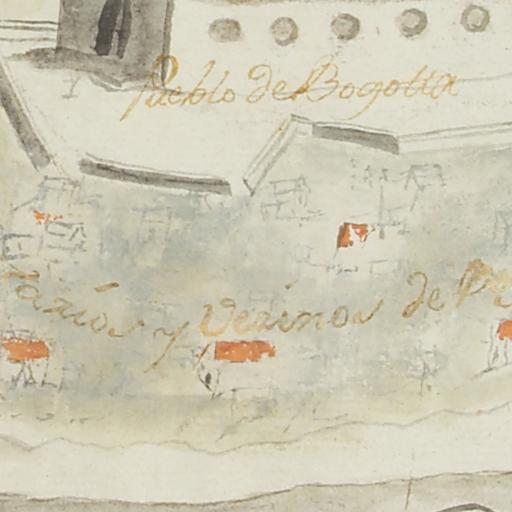 Pueblo de Bogotta
y Vezinos de